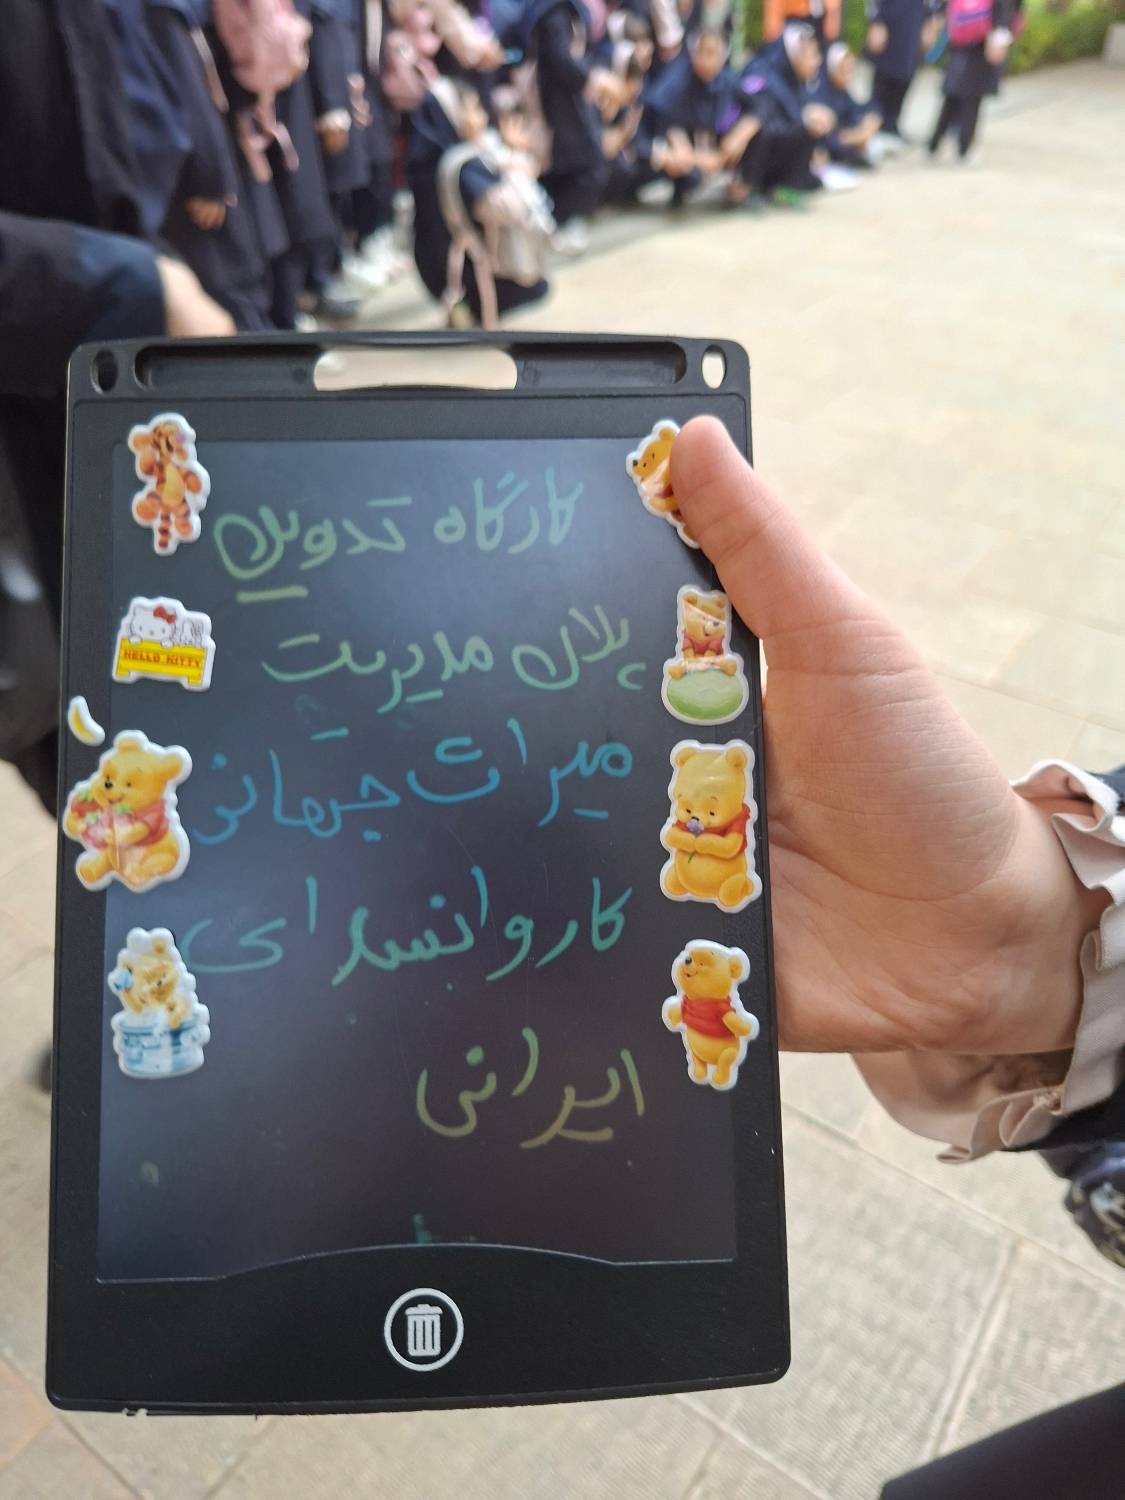 کارگاه تدوین
پلان مدیریت
میراث جهانی
کاروانسرای
ایرانی
HELLO KITTY